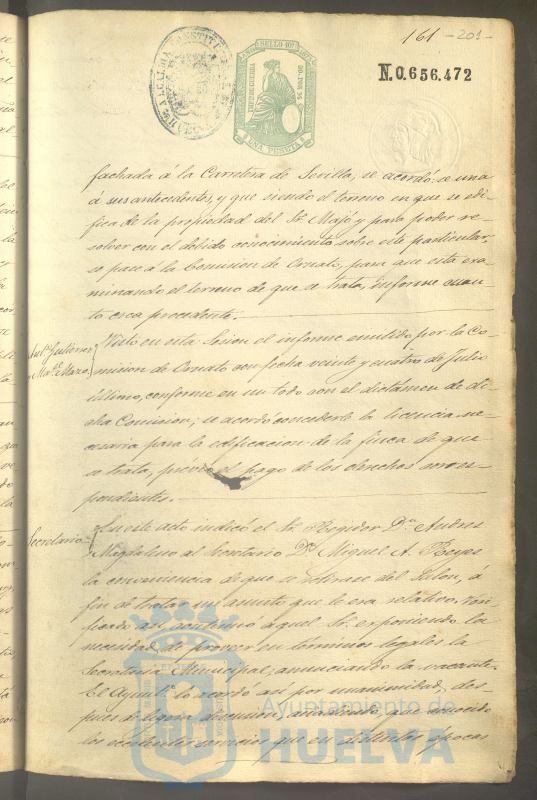 161 - 201 -
N.0.656.472
ALCALDIA CONSTITUCIONAL HUELVA
SELLO 10º
UNA PESETA
fachada á la Carretera de Sevilla, se acordó se una
á sus antecedentes, y que siendo el terreno en que se edi-
fica de la propiedad del Sr. Majó y para poder re-
solver con el debido conocimiento sobre este particular,
se pase á la Comision de Ornato, para que esta exa-
minando el terreno de que se trata, informe cuan-
to crea procedente.
Ant.º Gutierrez
Mª. de Mazo.
Visto en esta Sesion el informe emitido por la Co-
mision de Ornato con fecha veinte y cuatro de Julio
último, conforme en un todo con el dictámen de di-
cha Comision; se acordó concederle la licencia ne-
cesaria para la edificacion de la finca de que
se trata, prévio el pago de los derechos corres-
pondientes.
Secretario
En este acto indicó el Sr. Regidor Dn. Andres
Magdaleno al Secretario Dn. Miguel A. Reyes
la conveniencia de que se retirase del Salon, á
fin de tratar un asunto que le era relativo. Veri-
ficado así continuó aquel Sr. exponiendo la
necesidad de proveer en términos legales la
Secretaría Municipal, anunciando la vacante.
El Ayunt.º lo acordó así por unanimidad, des-
pues de ligera discusion, añadiendo, que conocido
los escelentes servicios que en distintas épocas
Ayuntamiento de
HUELVA